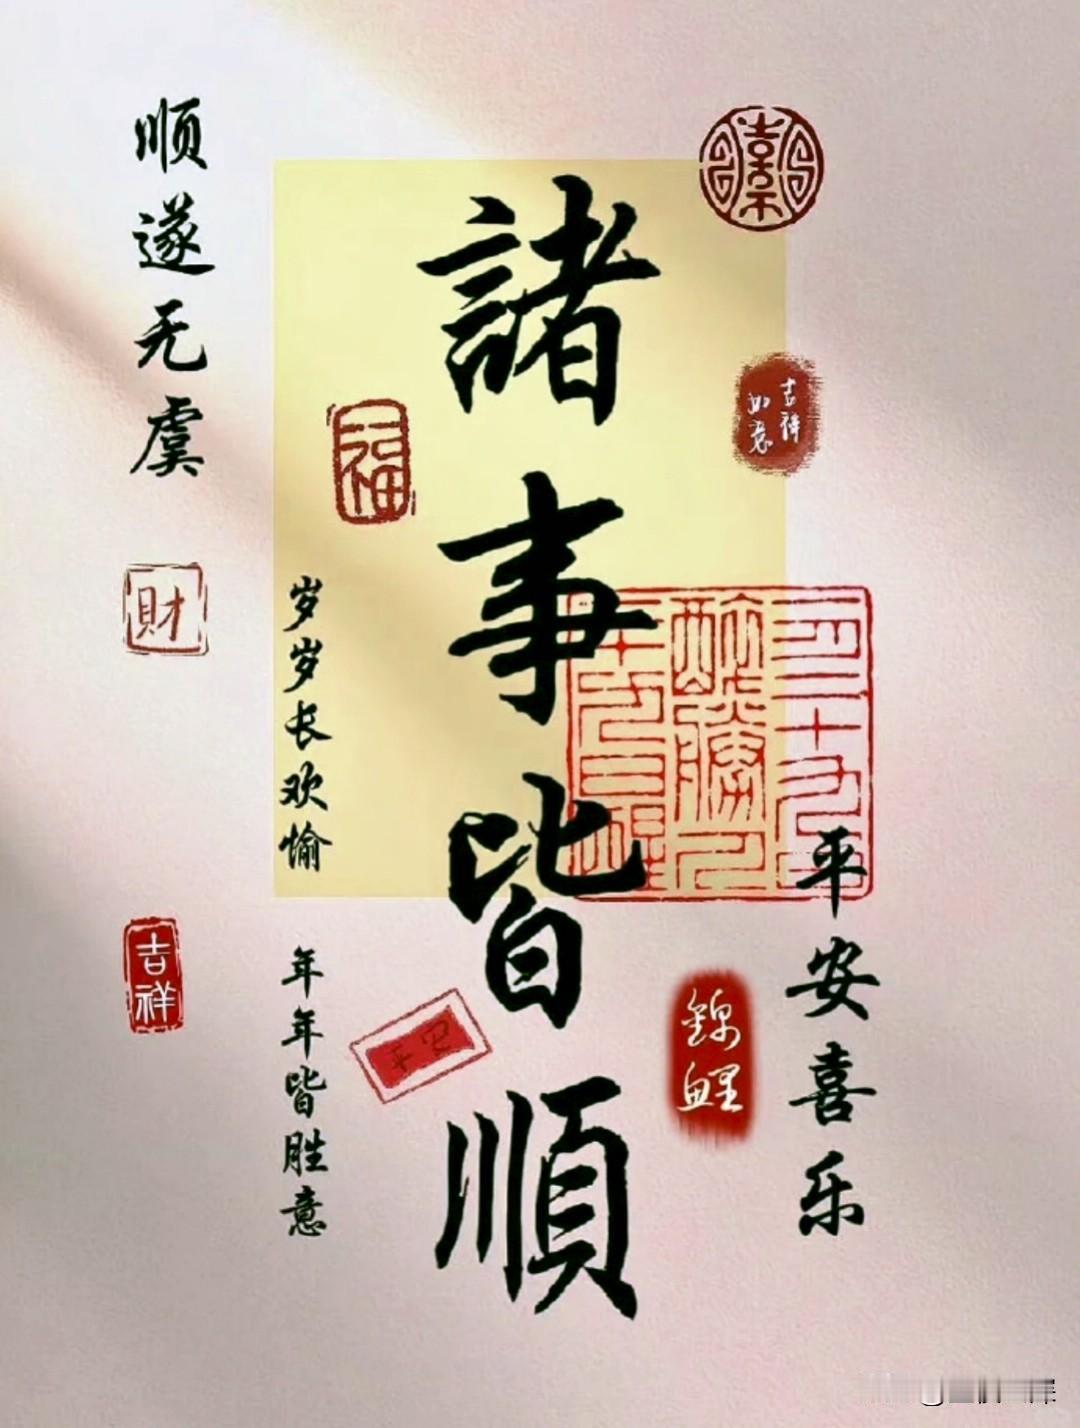 諸事皆順
顺遂无虞
岁岁长欢愉
年年皆胜意
平安喜乐
福
財
吉祥
平安
吉祥
如意
錦鲤